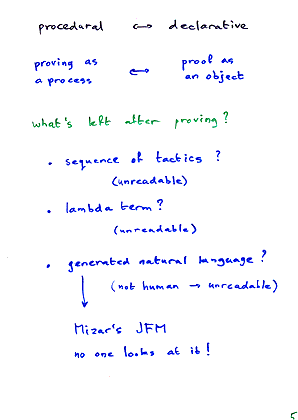 procedural ↔ declarative
proving as ↔ proof as
a process an object
what's left after proving?
• sequence of tactics ?
(unreadable)
• lambda term ?
(unreadable)
• generated natural language ?
(not human → unreadable)
↓
Mizar's JFM
no one looks at it!
5